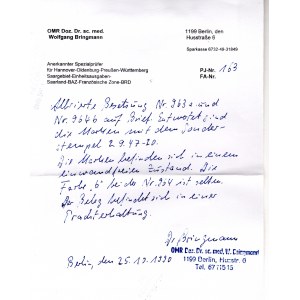 OMR Doz. Dr. sc. med.
Wolfgang Bringmann
1199 Berlin, den
Husstraße 6
Sparkasse 6732-49-31849
Anerkannter Spezialprüfer
für Hannover-Oldenburg-Preußen-Württemberg
Saargebiet-Einheitsausgaben-
Saarland-BAZ-Französische Zone-BRD
PJ-Nr. 163
FA-Nr.
Alliierte Besetzung Nr. 963a und
Nr. 964b auf Brief. Entwertet sind
die Marken mit dem Sonder-
stempel 2.9.47-20.
Die Marken befinden sich in einem
einwandfreien Zustand. Die
Farbe "b" bei der Nr. 964 ist selten.
Der Beleg befindet sich in einer
Prachterhaltung.
Dr. Bringmann
OMR Doz. Dr. sc. med. W. Bringmann
1199 Berlin, Husstr. 6
Berlin, den 25.10.1990